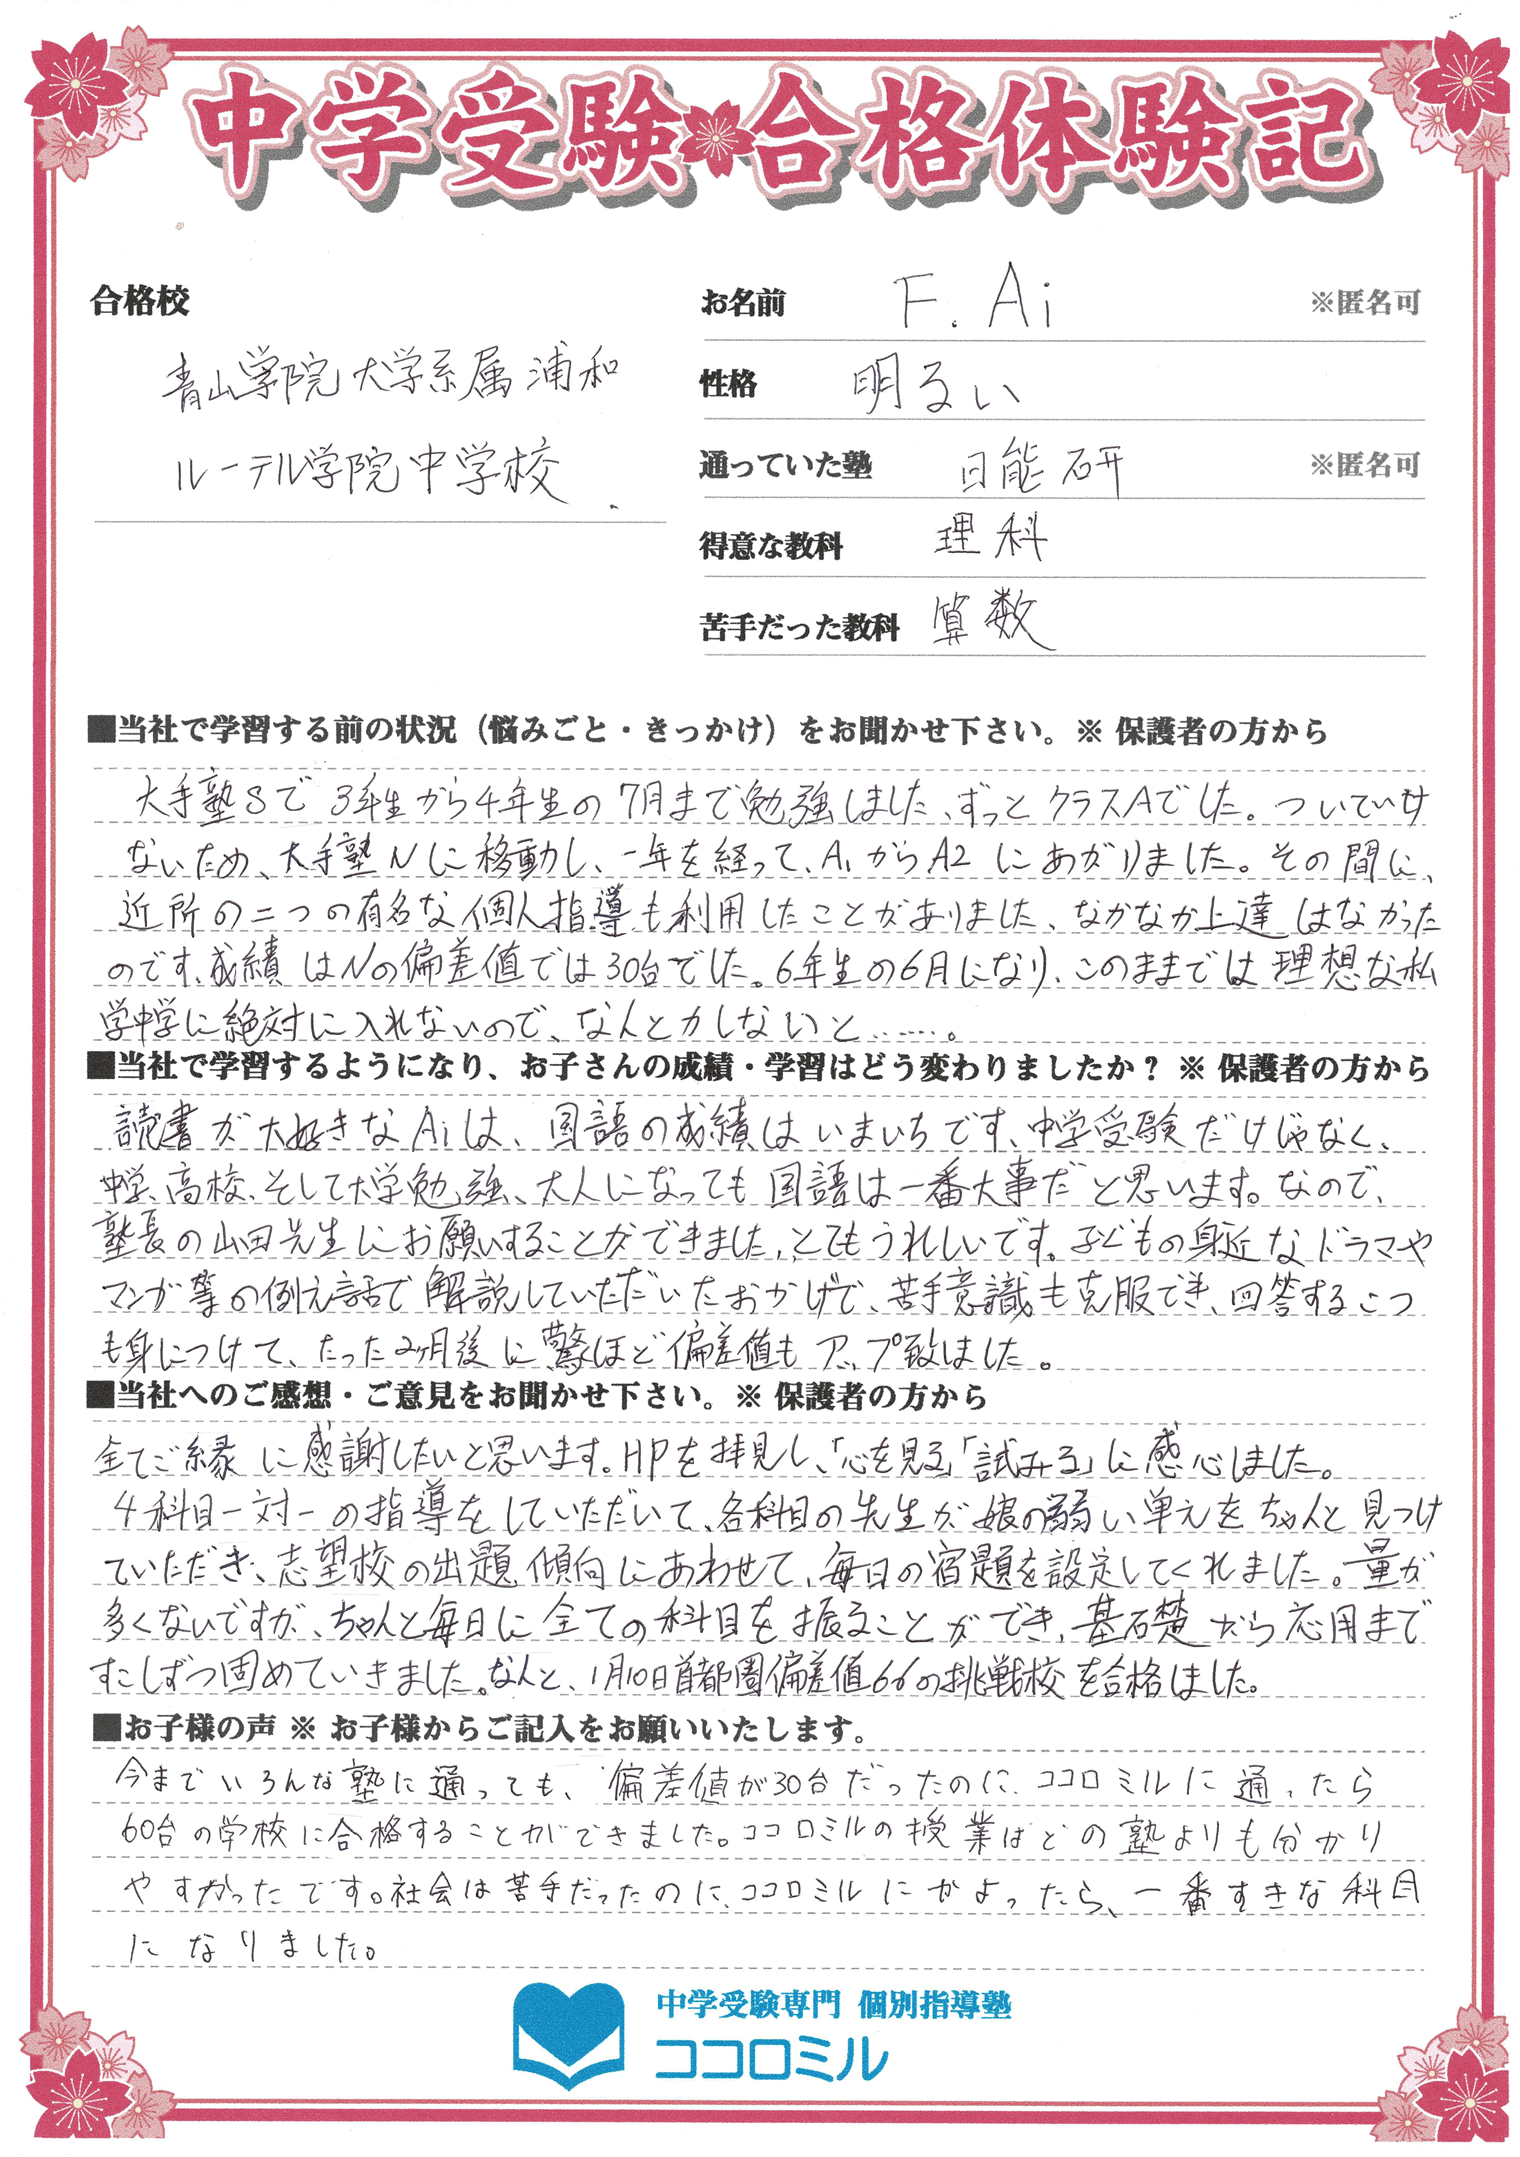 中学受験合格体験記
合格校
青山学院大学系属浦和
ルーテル学院中学校
お名前 F. Ai ※匿名可
性格 明るい
通っていた塾 日能研 ※匿名可
得意な教科 理科
苦手だった教科 算数
■当社で学習する前の状況（悩みごと・きっかけ）をお聞かせ下さい。※ 保護者の方から
大手塾Sで3年生から4年生の7月まで勉強しました、ずっとクラスAでした。ついていけ
ないため、大手塾Nに移動し、一年を経って、A1からA2にあがりました。その間に、
近所の二つの有名な個人指導も利用したことがありました、なかなか上達はなかった
のです、成績はNの偏差値では30台でした。6年生の6月になり、このままでは理想な私
学中学に絶対に入れないので、なんとかしないと……。
■当社で学習するようになり、お子さんの成績・学習はどう変わりましたか？ ※ 保護者の方から
読書が大好きなAiは、国語の成績はいまいちです、中学受験だけじゃなく、
中学、高校、そして大学勉強、大人になっても国語は一番大事だと思います。なので、
塾長の山田先生にお願いすることができました、とてもうれしいです。子どもの身近なドラマや
マンガ等の例え話で解説していただいたおかげで、苦手意識も克服でき、回答するこつ
も身につけて、たった2ヶ月後に驚ほど偏差値もアップ致ました。
■当社へのご感想・ご意見をお聞かせ下さい。※ 保護者の方から
全てご縁に感謝したいと思います。HPを拝見し、「心を見る」「試みる」に感心しました。
4科目一対一の指導をしていただいて、各科目の先生が娘の弱い単元をちゃんと見つけ
ていただき、志望校の出題傾向にあわせて、毎日の宿題を設定してくれました。量が
多くないですが、ちゃんと毎日に全ての科目を振ることができ、基礎から応用まで
すこしずつ固めていきました。なんと、1月10日首都圏偏差値66の挑戦校を合格ました。
■お子様の声 ※ お子様からご記入をお願いいたします。
今までいろんな塾に通っても、偏差値が30台だったのに、ココロミルに通ったら
60台の学校に合格することができました。ココロミルの授業はどの塾よりも分かり
やすかったです。社会は苦手だったのに、ココロミルにかよったら、一番すきな科目
になりました。
中学受験専門 個別指導塾
ココロミル